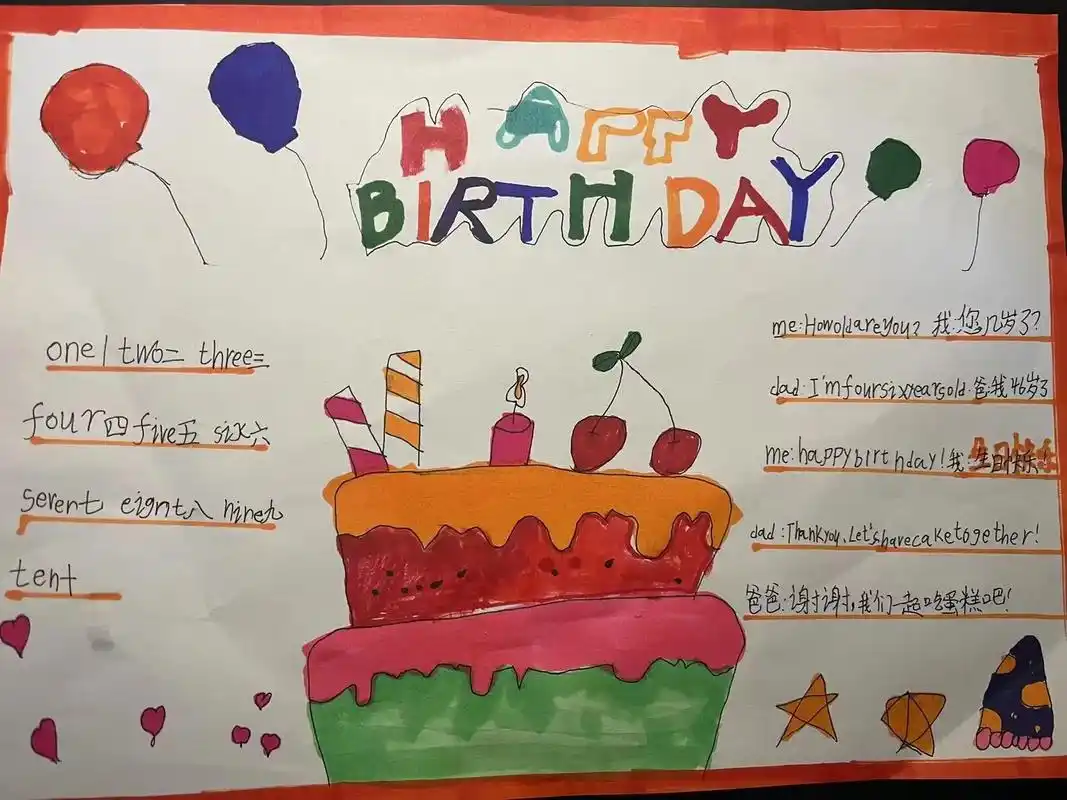 HAPPY
BIRTHDAY
one一 two二 three三
four四 five五 six六
seven七 eight八 nine九
ten十
me:Howoldareyou? 我:您几岁了?
dad:I'mfoursixyearsold.爸:我46岁了
me:happybirthday!我:生日快乐!
dad:Thankyou.Let'shavecaketogether!
爸爸:谢谢,我们一起吃蛋糕吧!